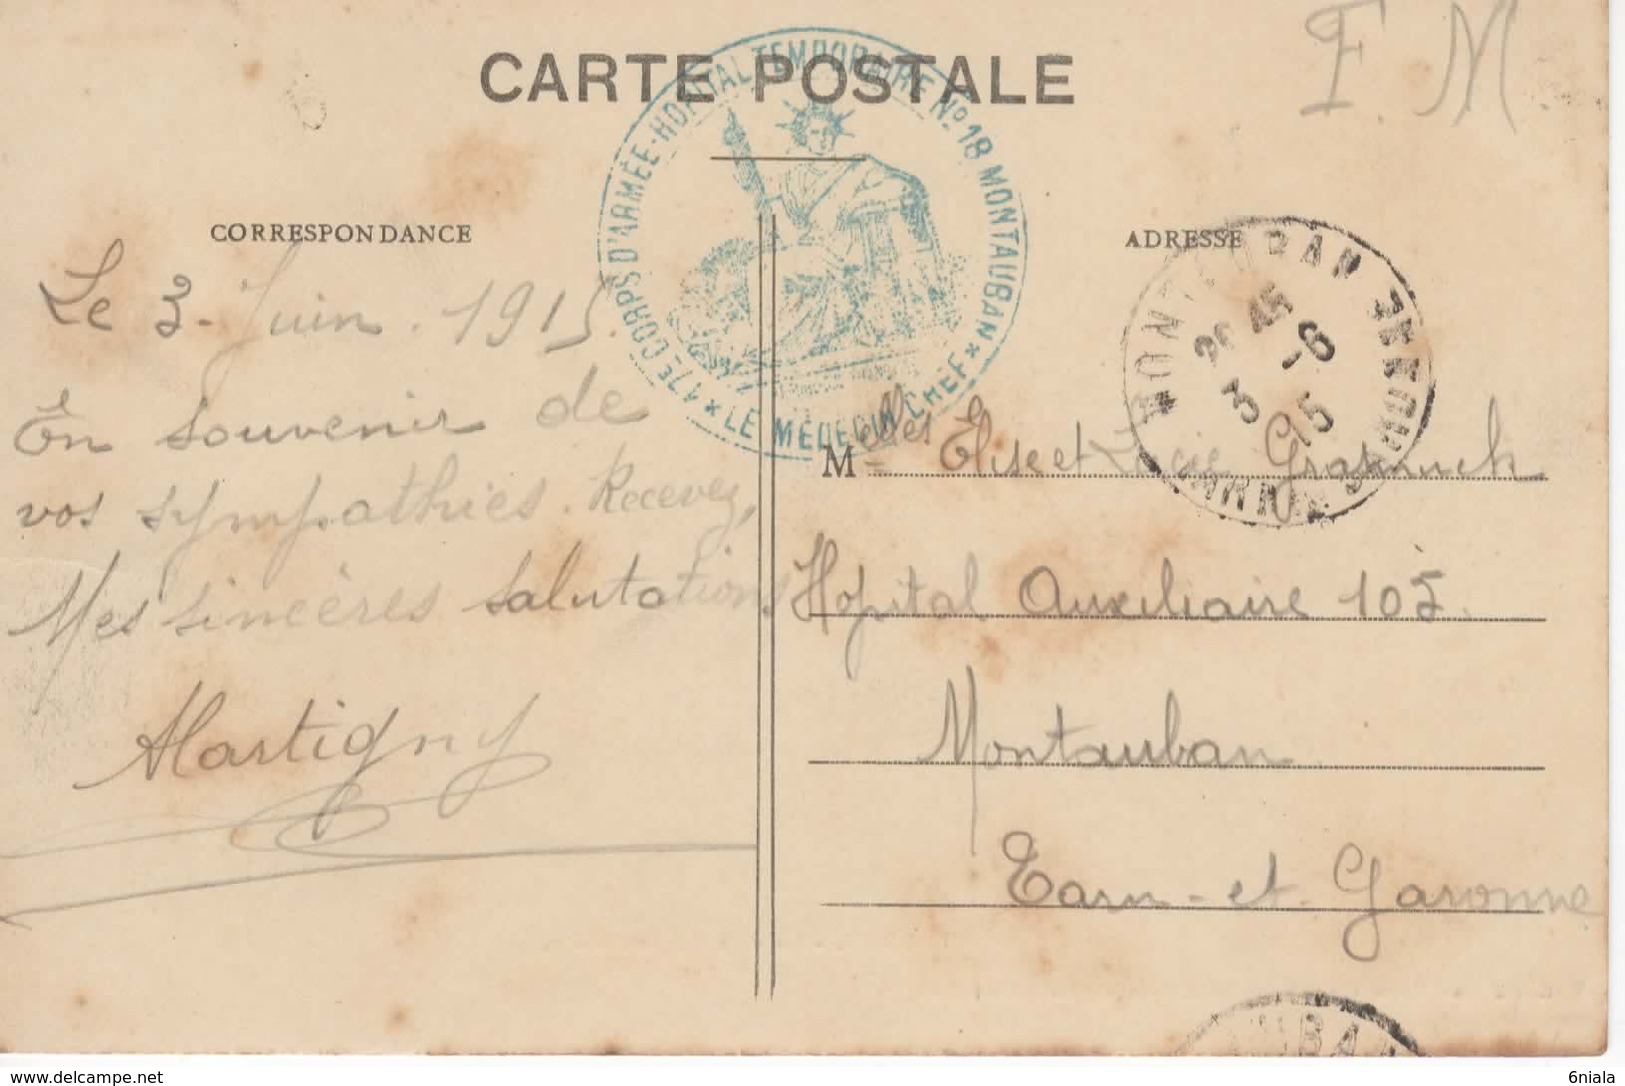 F. M.
CARTE POSTALE
17E CORPS D'ARMÉE - HOPITAL TEMPORAIRE No 18 MONTAUBAN * LE MÉDECIN CHEF *
CORRESPONDANCE
ADRESSE
MONTAUBAN TARN
20 45
3 -6
15
Le 3 Juin. 1915.
En souvenir de
vos sympathies. Recevez,
Mes sincères salutations
Martigny
Melles Elise et
Hopital Auxiliaire 105.
Montauban
Tarn-et-Garonne
UBA
www.delcampe.net
6niala